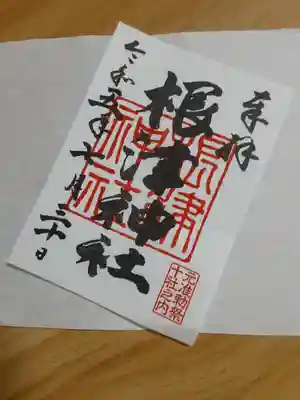 奉拝
根津神社
根津
神社
元准勅祭
十社之内
令和五年十月二十日